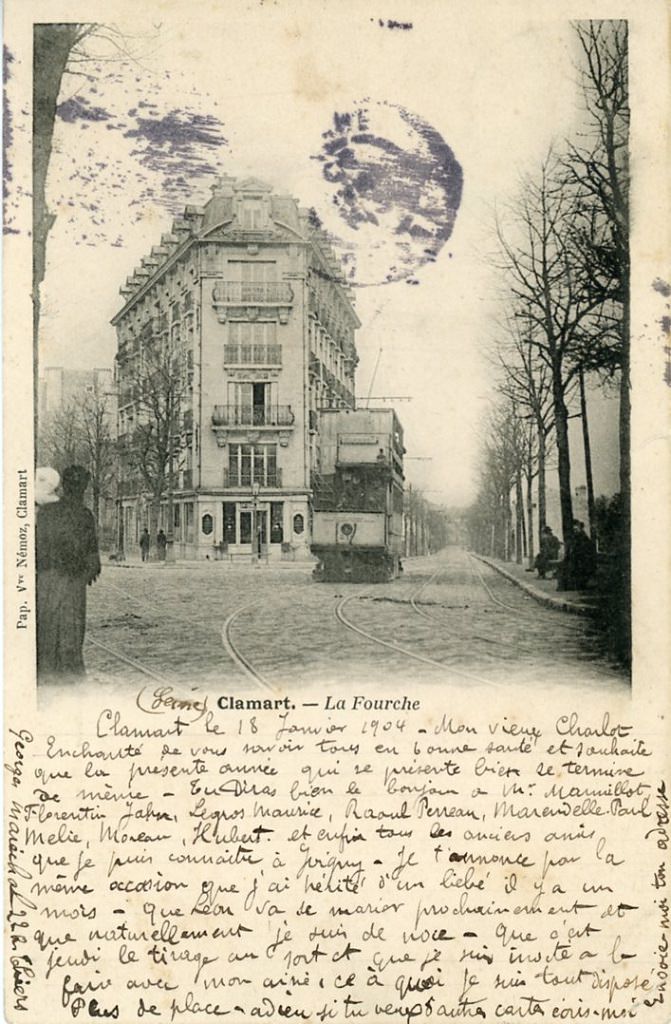 Pap. Vve Némoz, Clamart
(Seine) Clamart. — La Fourche
Clamart le 18 Janvier 1904 - Mon vieux Charlot
Enchanté de vous savoir tous en bonne santé et souhaite
que la présente année qui se présente bien se termine
de même - Tu Diras bien le bonjour a Mr. Mamillot
Florentin Jahn, Legros Maurice, Raoul Perreau, Marendelle Paul
Melie, Moreau, Hubert. et enfin tous les anciens amis
que je puis connaitre à - Je t'annonce par la
même occasion que j'ai hérité d'un bébé il y a un
mois - Que Léon va se marier prochainement et
que naturellement je suis de noce - Que c'est
jeudi le tirage au sort et que je suis invité a le
faire avec mon ainé, ce à quoi je suis tout disposé
Plus de place - adieu si tu veux d'autres cartes écris-moi
Envoie-moi ton adresse
Georges Maréchal 22 R.